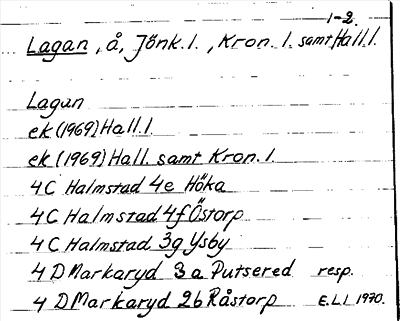 1-2.
Lagan, å, Jönk. l., Kron. l. samt Hall. l.
Lagan
ek (1969) Hall. l.
ek (1969) Hall. samt Kron. l.
4C Halmstad 4e Höka
4C Halmstad 4f Östorp
4C Halmstad 3g Ysby
4D Markaryd 3a Putsered resp.
4 D Markaryd 2b Råstorp E.L.l 1970.